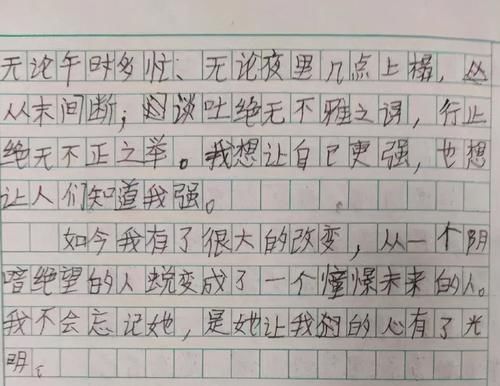 无论午时多忙、无论夜里几点上榻，
从未间断；谈吐绝无不雅之语，行止
绝无不正之举。我想让自己更强，也想
让人们知道我强。
如今我有了很大的改变，从一个阴
暗绝望的人蜕变成了一个憧憬未来的人。
我不会忘记她，是她让我的心有了光
明。